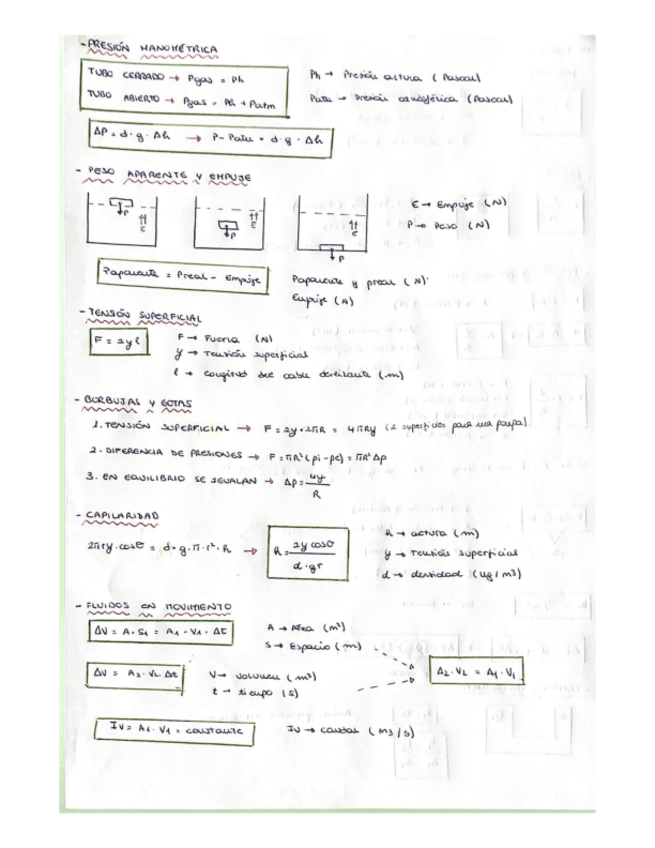 - PRESIÓN MANOMÉTRICA
TUBO CERRADO → Pgas = Ph
TUBO ABIERTO → Pgas = Ph + Patm
Ph → Presión altura (Pascal)
Patm → Presión atmosférica (Pascal)
ΔP = d · g · Δh → P - Patm = d · g · Δh
- PESO APARENTE Y EMPUJE
P
E
P
E
P
E
E → Empuje (N)
P → Peso (N)
Paparente = Preal - Empuje
Paparente y preal (N)
Empuje (N)
- TENSIÓN SUPERFICIAL
F = 2γl
F → Fuerza (N)
γ → Tensión superficial
l → Longitud del cable deslizante (m)
- BURBUJAS Y GOTAS
1. TENSIÓN SUPERFICIAL → F = 2γ · 2πR = 4πRγ (2 superficies para una pompa)
2. DIFERENCIA DE PRESIONES → F = πR² (pi - pe) = πR² Δp
3. EN EQUILIBRIO SE IGUALAN → Δp = 4γ / R
- CAPILARIDAD
2πrγ · cosθ = d · g · π · r² · h → h = 2γ cosθ / d · gr
h → altura (m)
γ → Tensión superficial
d → densidad (kg / m3)
- FLUIDOS EN MOVIMIENTO
ΔV = A · S1 = A1 · V1 · Δt
A → Área (m²)
S → Espacio (m)
ΔV = A2 · V2 · Δt
V → volumen (m³)
t → tiempo (s)
A2 · V2 = A1 · V1
IV = A1 · V1 = constante
IV → caudal (m3/s)